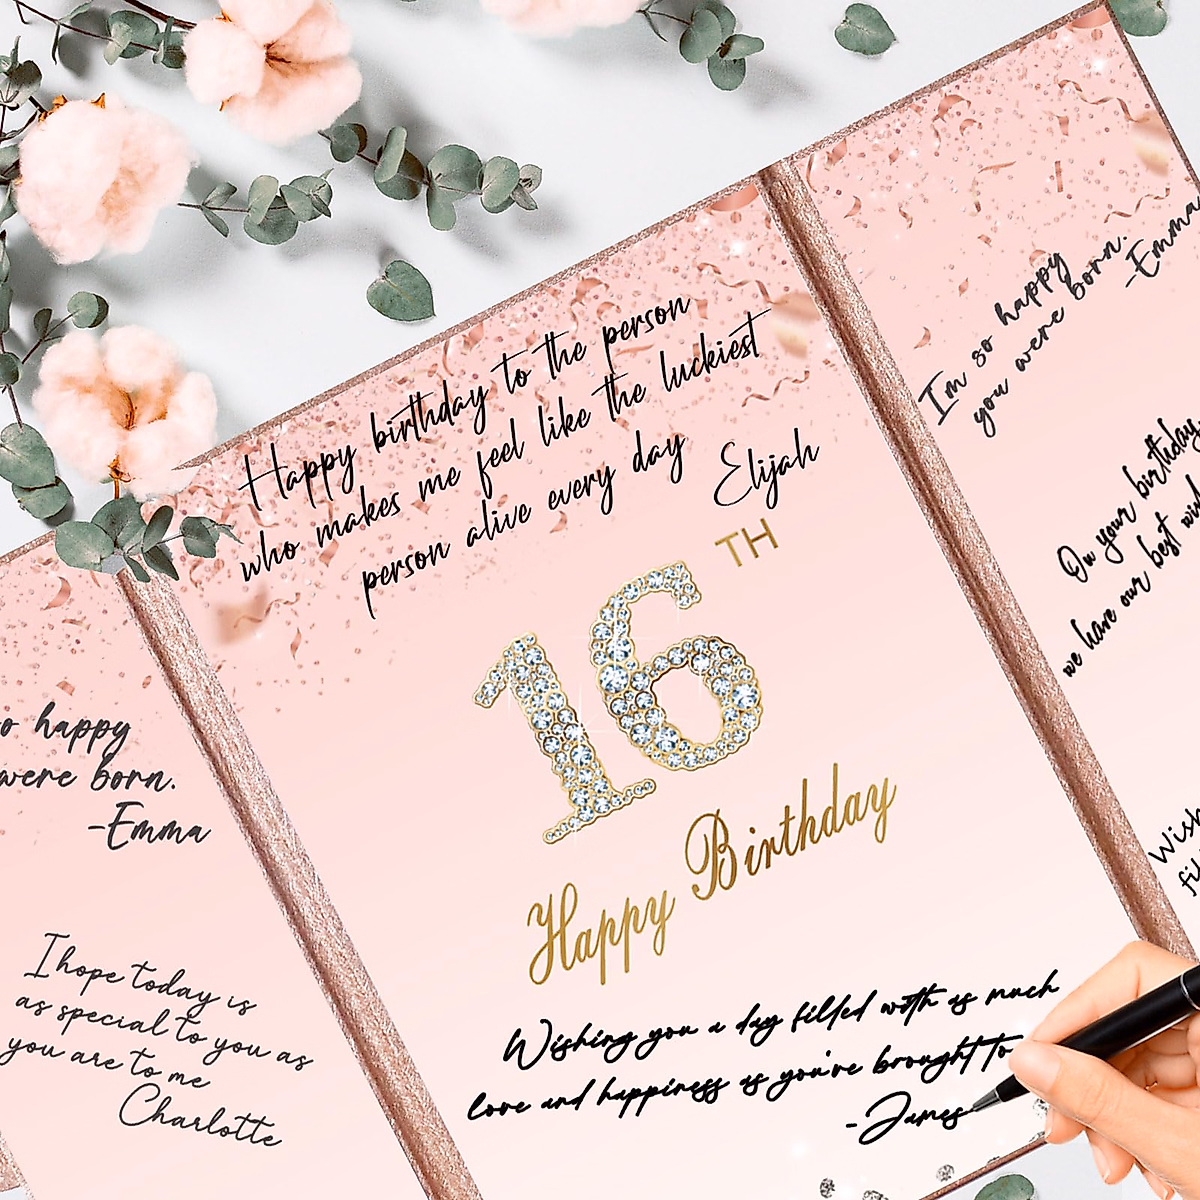 Happy birthday to the person
who makes me feel like the luckiest
person alive every day
Elijah
16TH
Happy Birthday
Wishing you a day filled with as much
love and happiness as you've brought to
-James
happy
were born.
-Emma
I hope today is
as special to you as
you are to me
Charlotte
I'm so happy
you were born.
-Emma
On your birthday,
we have our best
Wish